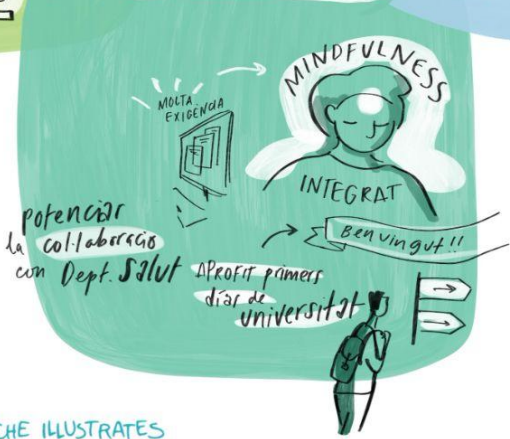 MOLTA
EXIGÈNCIA
MINDFULNESS
INTEGRAT
potenciar
la col·laboració
con Dept. Salut
Benvingut!!
APROFIT primers
días de
universitat
CHE ILLUSTRATES